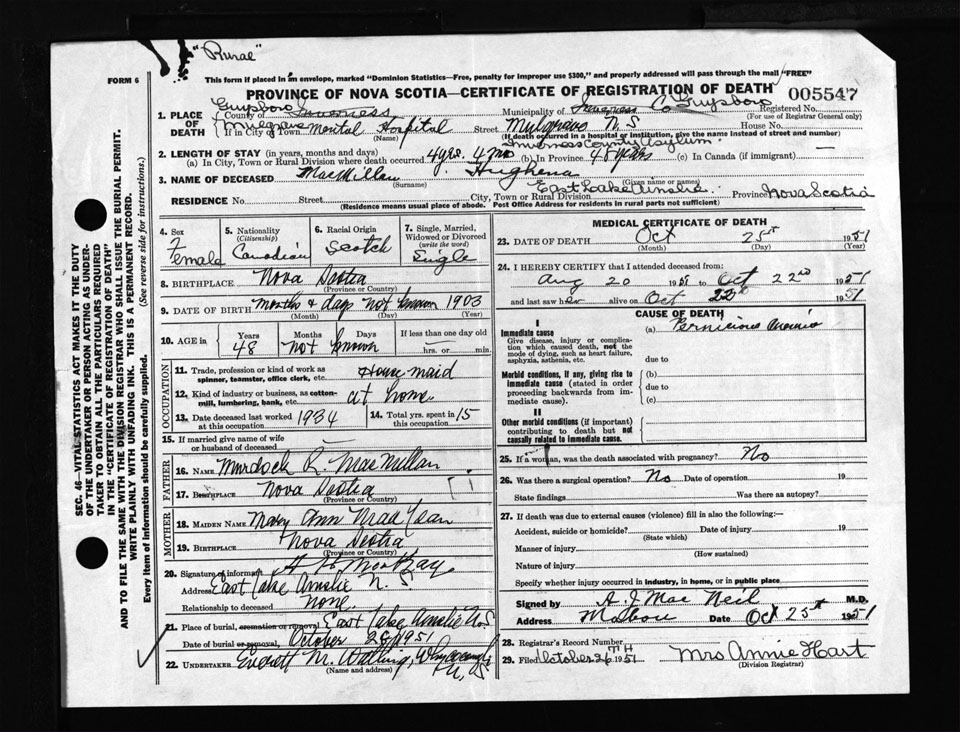 "Rurae"
FORM 6
This form if placed in an envelope, marked "Dominion Statistics—Free, penalty for improper use $300," and properly addressed will pass through the mail "FREE"
PROVINCE OF NOVA SCOTIA—CERTIFICATE OF REGISTRATION OF DEATH
005547
Guysboro
1. PLACE OF DEATH County of Inverness Municipality of Inverness Co Guysboro Registered No.
(For use of Registrar General only)
Mulgrave If in City or Town Mental Hospital Street Mulgrave N.S House No.
(Name) (If death occurred in a hospital or institution, give the name instead of street and number)
Inverness County Asylum
2. LENGTH OF STAY (in years, months and days)
(a) In City, Town or Rural Division where death occurred 4 yrs. 4 mo (b) In Province 48 years (c) In Canada (if immigrant) —
3. NAME OF DECEASED MacMillan, Hughena
(Surname) (Given name or names)
RESIDENCE No. Street City, Town or Rural Division East Lake Ainslie Province Nova Scotia
(Residence means usual place of abode. Post Office Address for residents in rural parts not sufficient)
4. Sex
Female
5. Nationality
(Citizenship)
Canadian
6. Racial Origin
Scotch
7. Single, Married, Widowed or Divorced
(write the word)
Single
8. BIRTHPLACE Nova Scotia
(Province or Country)
9. DATE OF BIRTH months & days not known 1903
(Month) (Day) (Year)
10. AGE in Years Months Days If less than one day old
48 not known hrs. or min.
OCCUPATION
11. Trade, profession or kind of work as spinner, teamster, office clerk, etc. House maid
12. Kind of industry or business, as cotton-mill, lumbering, bank, etc. at home
13. Date deceased last worked at this occupation 1934 14. Total yrs. spent in this occupation 15
15. If married give name of wife or husband of deceased —
FATHER
16. NAME Murdock R. MacMillan
17. BIRTHPLACE Nova Scotia
(Province or Country)
MOTHER
18. MAIDEN NAME Mary Ann
19. BIRTHPLACE Nova Scotia
(Province or Country)
20. Signature of informant
Address East Lake Ainslie N. S.
Relationship to deceased none.
21. Place of burial, cremation or removal East Lake Ainslie N.S
Date of burial or removal October 28, 1951
22. UNDERTAKER Everett M. Whycocomagh
(Name and address) N.S
MEDICAL CERTIFICATE OF DEATH
23. DATE OF DEATH Oct 25th 1951
(Month) (Day) (Year)
24. I HEREBY CERTIFY that I attended deceased from:
Aug 20 1951 to Oct 22nd 1951
and last saw her alive on Oct 22nd 1951
CAUSE OF DEATH
I
Immediate cause
Give disease, injury or complication which caused death, not the mode of dying, such as heart failure, asphyxia, asthenia, etc.
(a) Pernicious Anemia
due to
Morbid conditions, if any, giving rise to immediate cause (stated in order proceeding backwards from immediate cause).
(b)
due to
(c)
II
Other morbid conditions (if important) contributing to death but not causally related to immediate cause.
25. If a woman, was the death associated with pregnancy? No
26. Was there a surgical operation? No Date of operation 19
State findings Was there an autopsy?
27. If death was due to external causes (violence) fill in also the following:—
Accident, suicide or homicide? Date of injury 19
(State which)
Manner of injury
(How sustained)
Nature of injury
Specify whether injury occurred in industry, in home, or in public place
Signed by A. J Mac Neil M.D.
Address Mabou Date Oct 25th 1951
28. Registrar's Record Number
29. Filed October 26TH 1951 Mrs Annie Hart
(Division Registrar)
SEC. 46—VITAL STATISTICS ACT MAKES IT THE DUTY
OF THE UNDERTAKER OR PERSON ACTING AS UNDERTAKER
TO OBTAIN ALL THE PARTICULARS REQUIRED
IN THE "CERTIFICATE OF REGISTRATION OF DEATH"
AND TO FILE THE SAME WITH THE DIVISION REGISTRAR WHO SHALL ISSUE THE BURIAL PERMIT.
WRITE PLAINLY WITH UNFADING INK. THIS IS A PERMANENT RECORD.
Every item of Information should be carefully supplied. (See reverse side for instructions.)